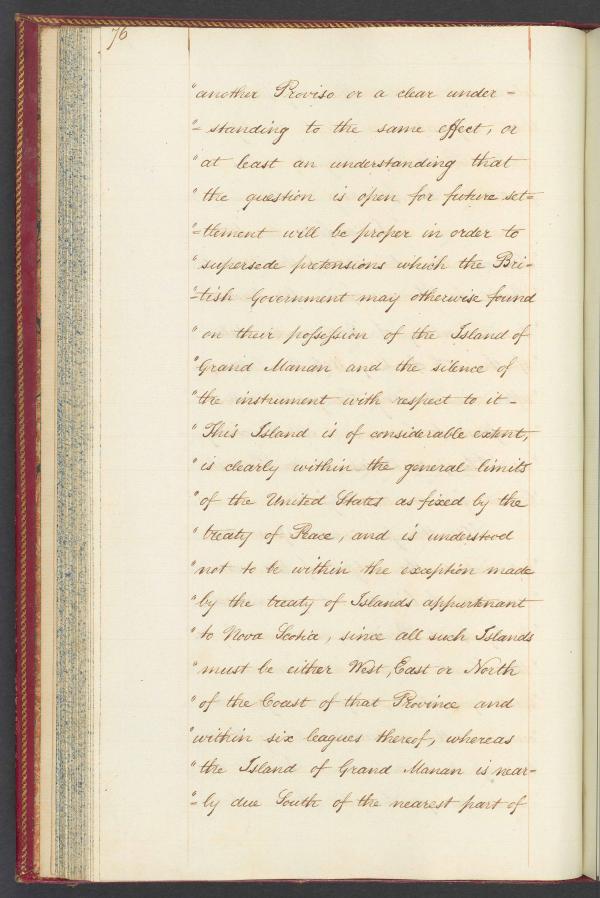 76
"another Proviso or a clear under=
"=standing to the same effect, or
"at least an understanding that
"the question is open for future set=
"=tlement will be proper in order to
"supersede pretensions which the Bri-
"=tish Government may otherwise found
"on their possession of the Island of
"Grand Manan and the silence of
"the instrument with respect to it -
"This Island is of considerable extent,
"is clearly within the general limits
"of the United States as fixed by the
"treaty of Peace, and is understood
"not to be within the exception made
"by the treaty of Islands appurtenant
"to Nova Scotia, since all such Islands
"must be either West, East or North
"of the Coast of that Province and
"within six leagues thereof, whereas
"the Island of Grand Manan is near-
"=ly due South of the nearest part of